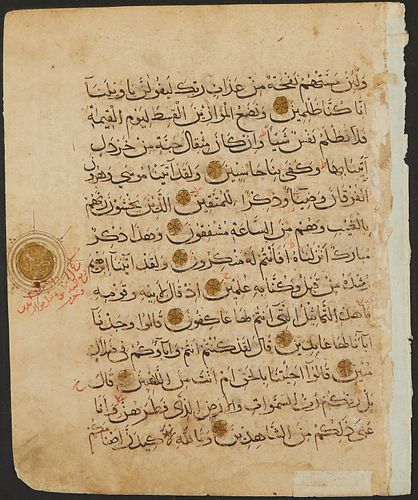 ولئن مستهم نفحة من عذاب ربك ليقولن يا ويلنا
انا كنا ظلمين ونضع الموازين القسط ليوم القيمة
فلا تظلم نفس شيا وان كان مثقال حبة من خردل
اتينا بها وكفى بنا حاسبين ولقد آتينا موسى وهرون
الفرقان وضيا وذكرا للمتقين الذين يخشون ربهم
بالغيب وهم من الساعة مشفقون وهذا ذكر
مبارك انزلناه افانتم له منكرون ولقد آتينا ابرهيم
رشده من قبل وكنا به علمين اذ قال لابيه وقومه
ما هذه التماثيل التي انتم لها عاكفون قالوا وجدنا
آبانا لها عابدين قال لقد كنتم انتم وآباوكم في ضلال
مبين قالوا اجئتنا بالحق ام انت من اللعبين قال
بل ربكم رب السموات والارض الذي فطرهن وانا
على ذلكم من الشاهدين وتالله لاكيدن اصنامكم